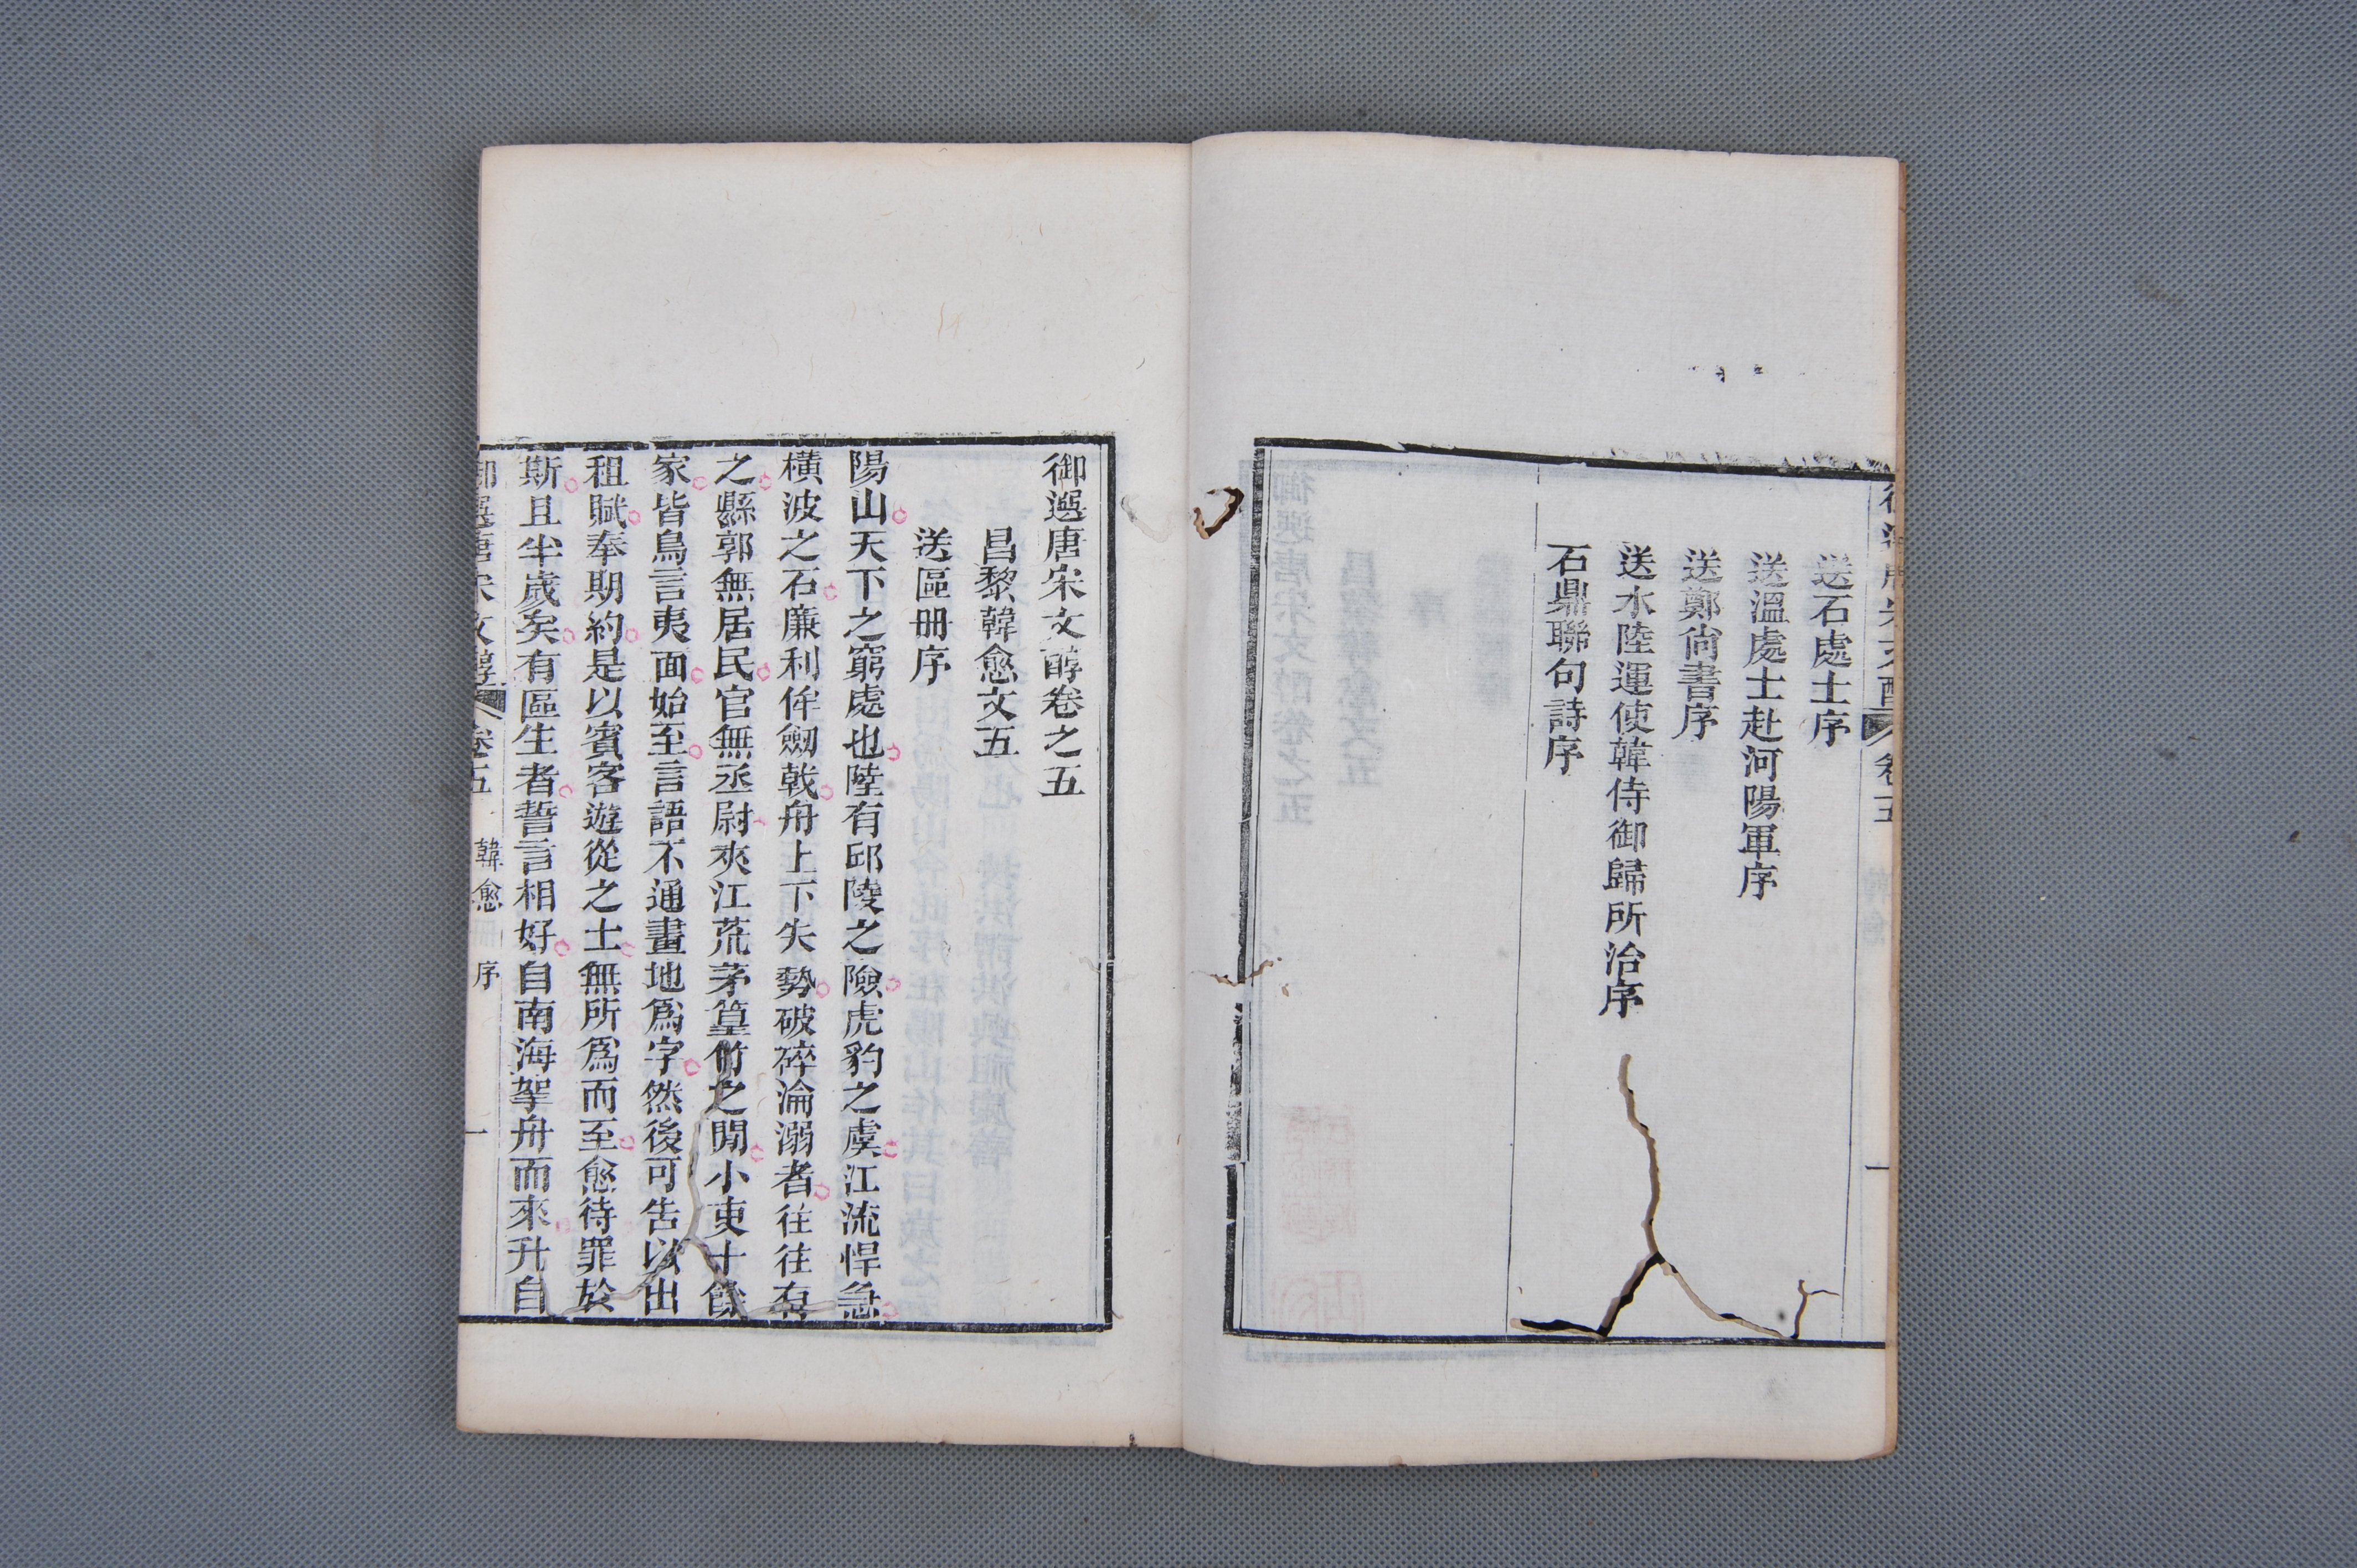 送石處士序
送溫處士赴河陽軍序
送鄭尙書序
送水陸運使韓侍御歸所治序
石鼎聯句詩序
卷五
一
御選唐宋文醇卷之五
昌黎韓愈文五
送區冊序
陽山天下之窮處也陸有邱陵之險虎豹之虞江流悍急
橫波之石廉利侔劒戟舟上下失勢破碎淪溺者往往有
之縣郭無居民官無丞尉夾江荒茅篁竹之閒小吏十餘
家皆鳥言夷面始至言語不通畫地爲字然後可告以出
租賦奉期約是以賓客遊從之士無所爲而至愈待罪於
斯且半歲矣有區生者誓言相好自南海挐舟而來升自
御選唐宋文醇 卷五 韓愈 序 一